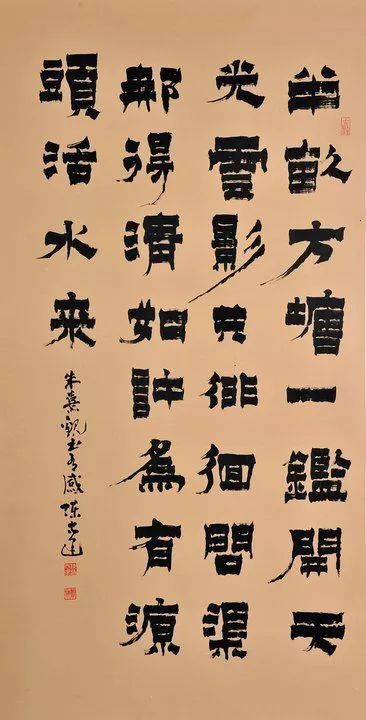 半畝方塘一鑑開天
光雲影共徘徊問渠
那得清如許為有源
頭活水來
朱熹觀書有感陳